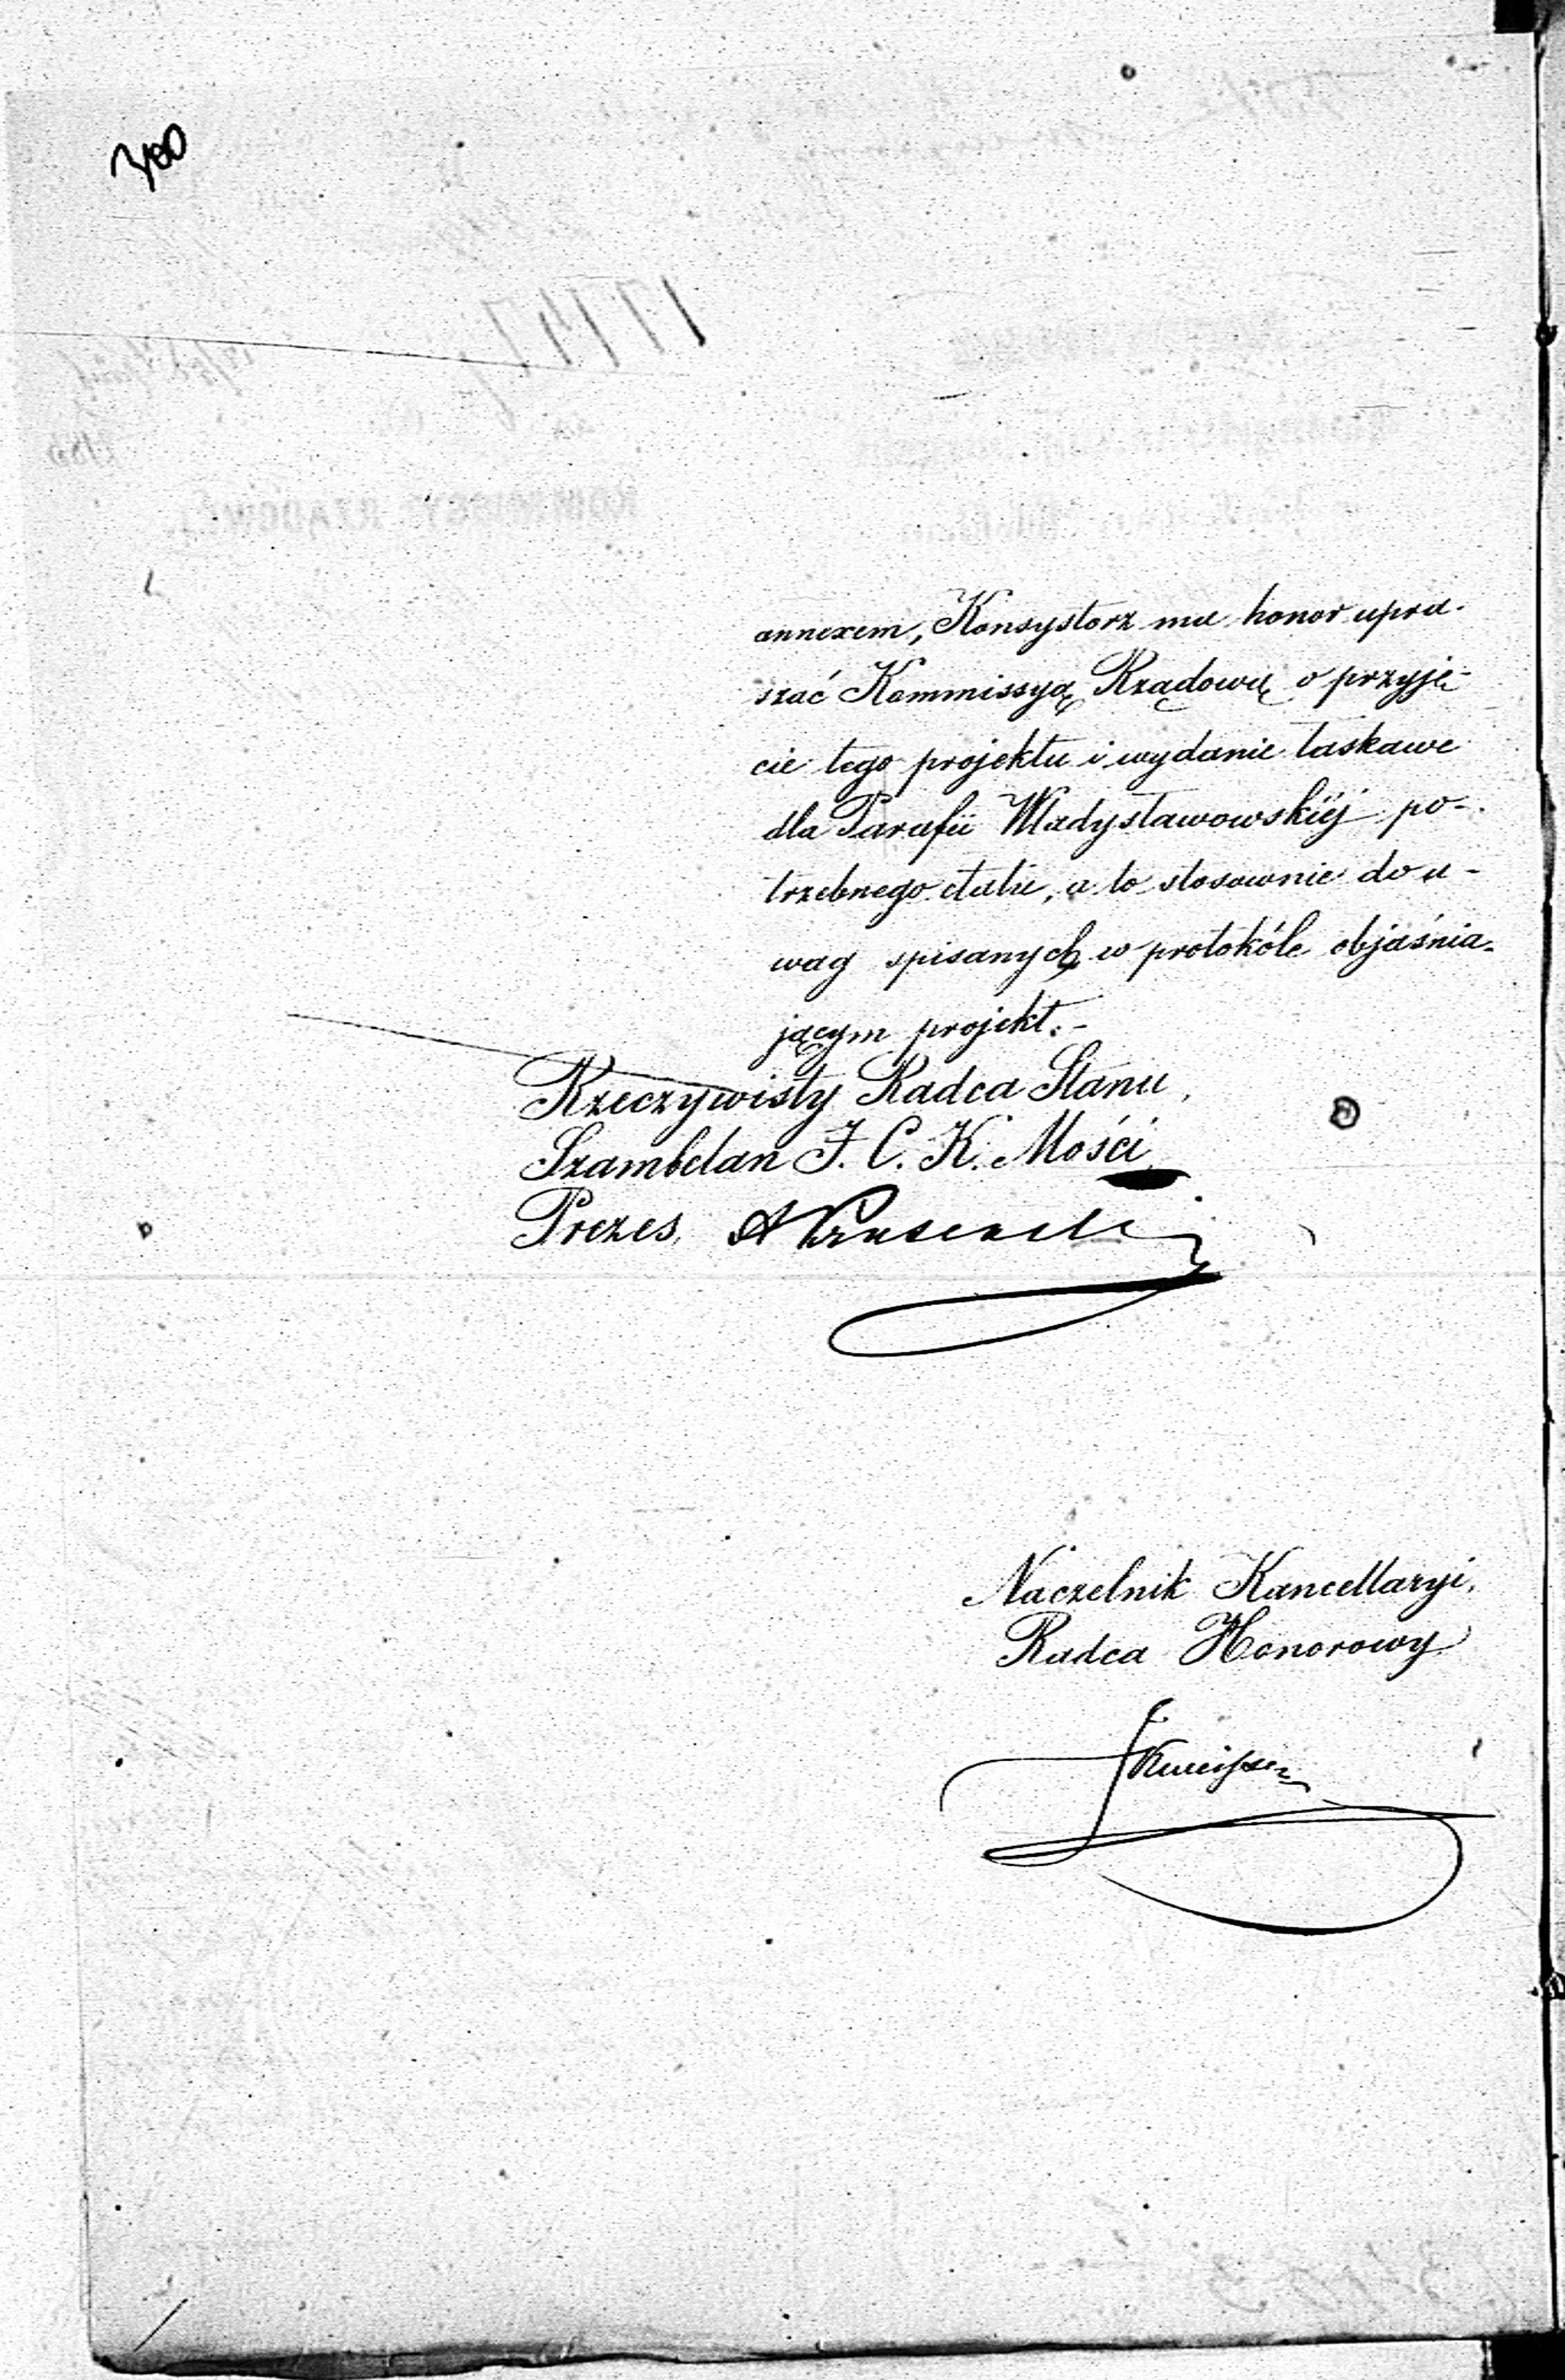 annexem, Konsystorz ma honor upra-
szać Kommissyą Rządową o przyję-
cie tego projektu i wydanie łaskawe
dla Parafii Władysławowskiéj po-
trzebnego etatu, a to stosownie do u-
wag spisanych w protokóle objaśnia-
jącym projekt.-
Rzeczywisty Radca Stanu,
Szambelan J. C. K. Mości
Prezes,
Naczelnik Kancellaryi,
Radca Honorowy